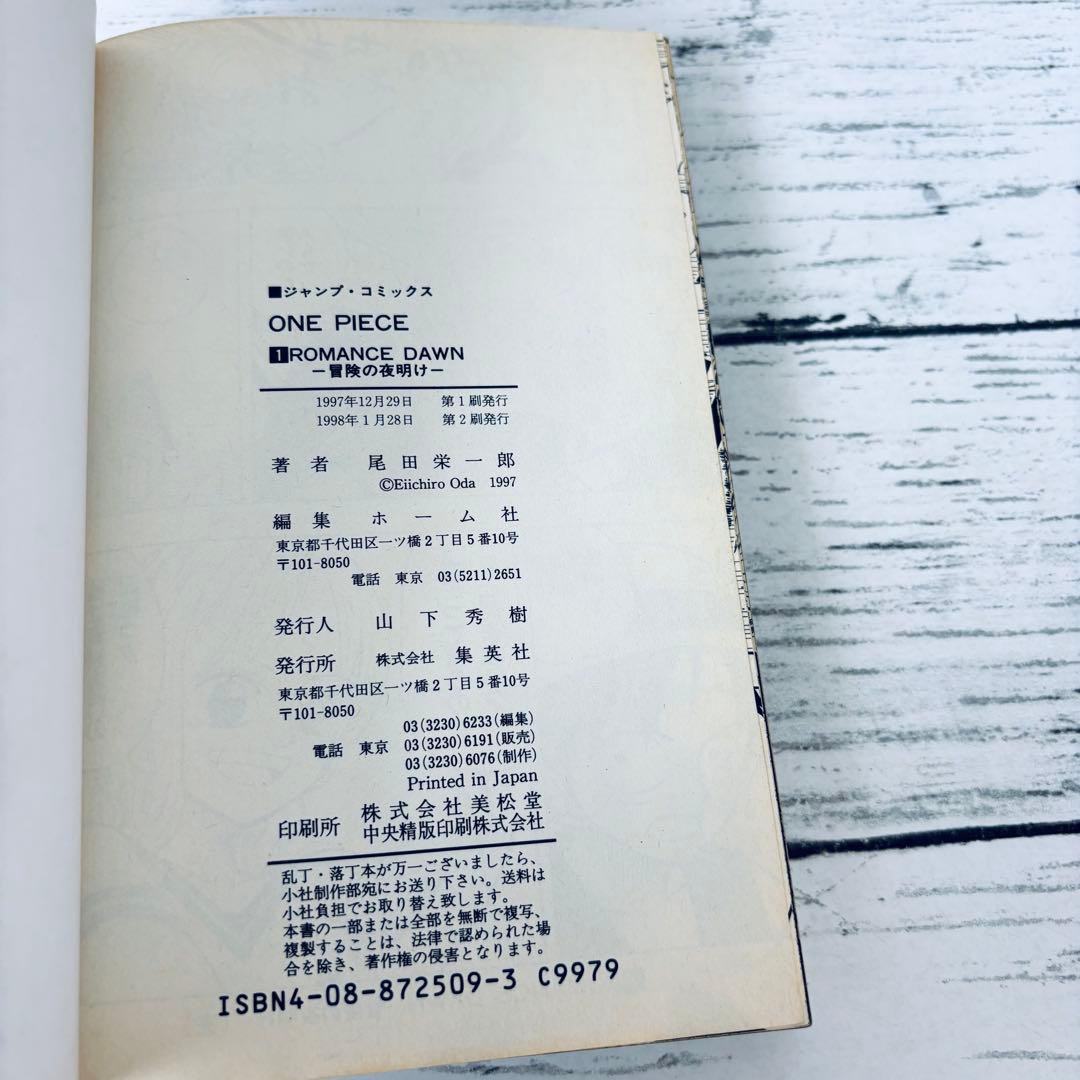 ■ジャンプ・コミックス
ONE PIECE
1 ROMANCE DAWN
―冒険の夜明け―
1997年12月29日　第1刷発行
1998年1月28日　第2刷発行
著者　尾田栄一郎
©Eiichiro Oda 1997
編集　ホーム社
東京都千代田区一ツ橋2丁目5番10号
〒101-8050
電話　東京　03(5211)2651
発行人　山下秀樹
発行所　株式会社　集英社
東京都千代田区一ツ橋2丁目5番10号
〒101-8050
03(3230)6233(編集)
電話　東京　03(3230)6191(販売)
03(3230)6076(制作)
Printed in Japan
印刷所　株式会社美松堂
中央精版印刷株式会社
乱丁・落丁本が万一ございましたら、
小社制作部宛にお送り下さい。送料は
小社負担でお取り替え致します。
本書の一部または全部を無断で複写、
複製することは、法律で認められた場
合を除き、著作権の侵害となります。
ISBN4-08-872509-3 C9979